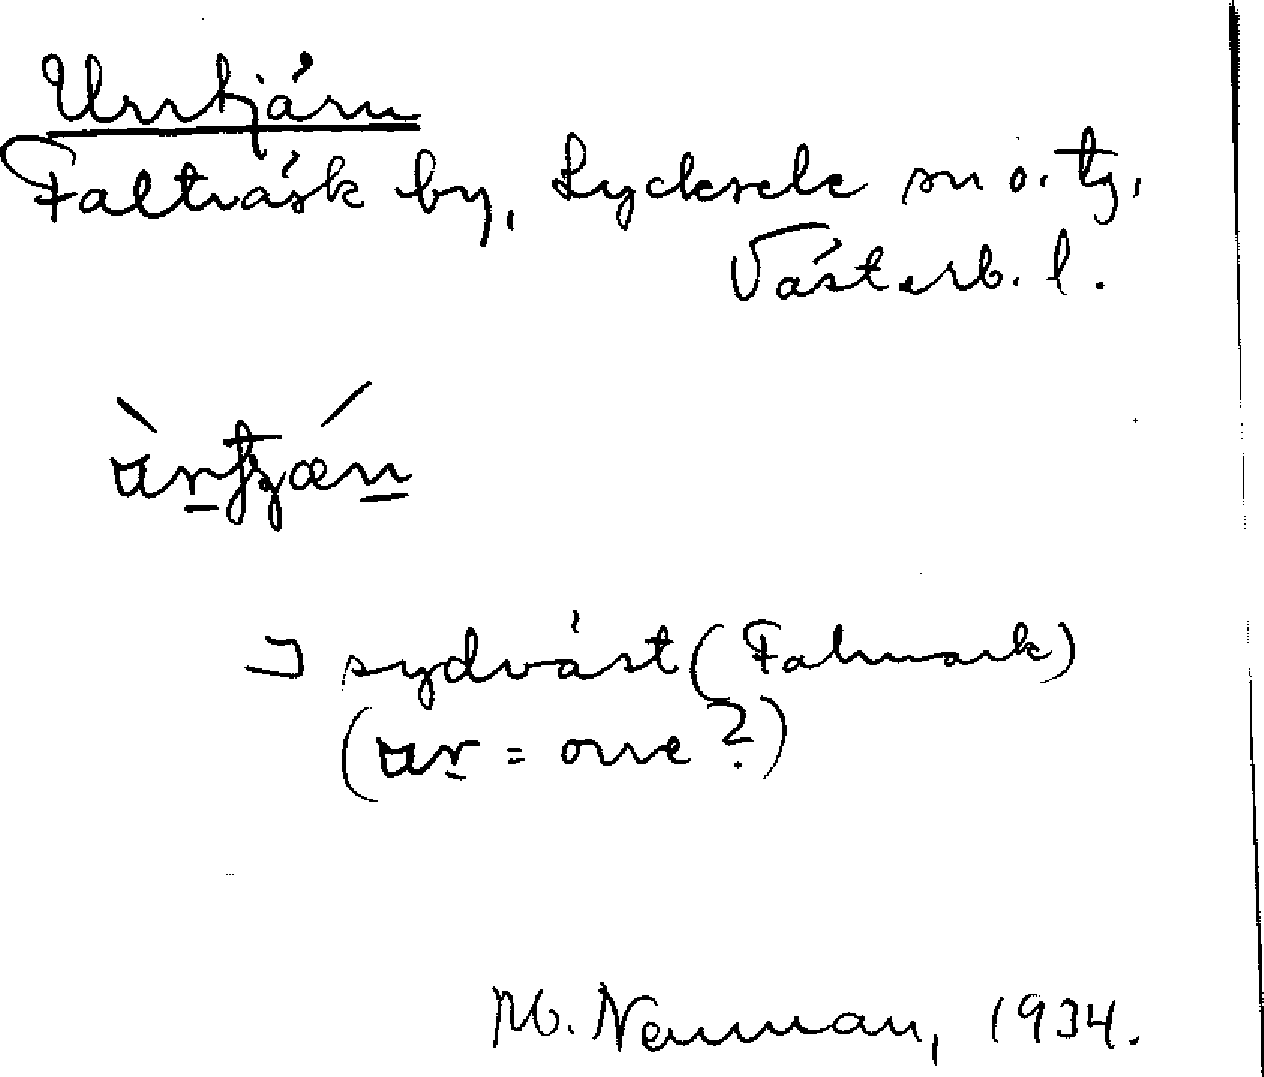 Urrtjärn
Falträsk by, Lycksele sn o. tg,
Västerb. l.
I sydväst (Falmark)
= orre ?)
M. Neuman, 1934.